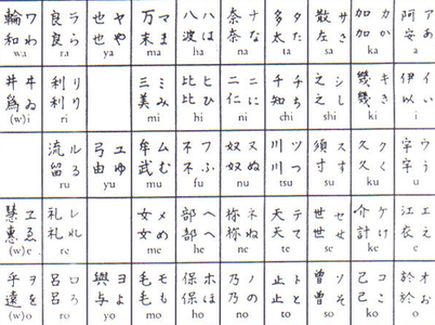 輪ワ 良ラ 也ヤ 万マ 八ハ 奈ナ 多タ 散サ 加カ 阿ア
和わ 良ら 也や 末ま 波は 奈な 太た 左さ 加か 安あ
wa ra ya ma ha na ta sa ka a
井ヰ 利リ 三ミ 比ヒ 二ニ 千チ 之シ 幾キ 伊イ
爲ゐ 利り 美み 比ひ 仁に 知ち 之し 幾き 以い
(w)i ri mi hi ni chi shi ki i
流ル 弓ユ 牟ム 不フ 奴ヌ 川ツ 須ス 久ク 宇ウ
留る 由ゆ 武む 不ふ 奴ぬ 川つ 寸す 久く 宇う
ru yu mu fu nu tsu su ku u
慧ヱ 礼レ 女メ 部ヘ 祢ネ 天テ 世セ 介ケ 江エ
惠ゑ 礼れ 女め 部へ 祢ね 天て 世せ 計け 衣え
(w)e re me he ne te se ke e
乎ヲ 呂ロ 與ヨ 毛モ 保ホ 乃ノ 止ト 曽ソ 己コ 於オ
遠を 呂ろ 与よ 毛も 保ほ 乃の 止と 曽そ 己こ 於お
(w)o ro yo mo ho no to so ko o